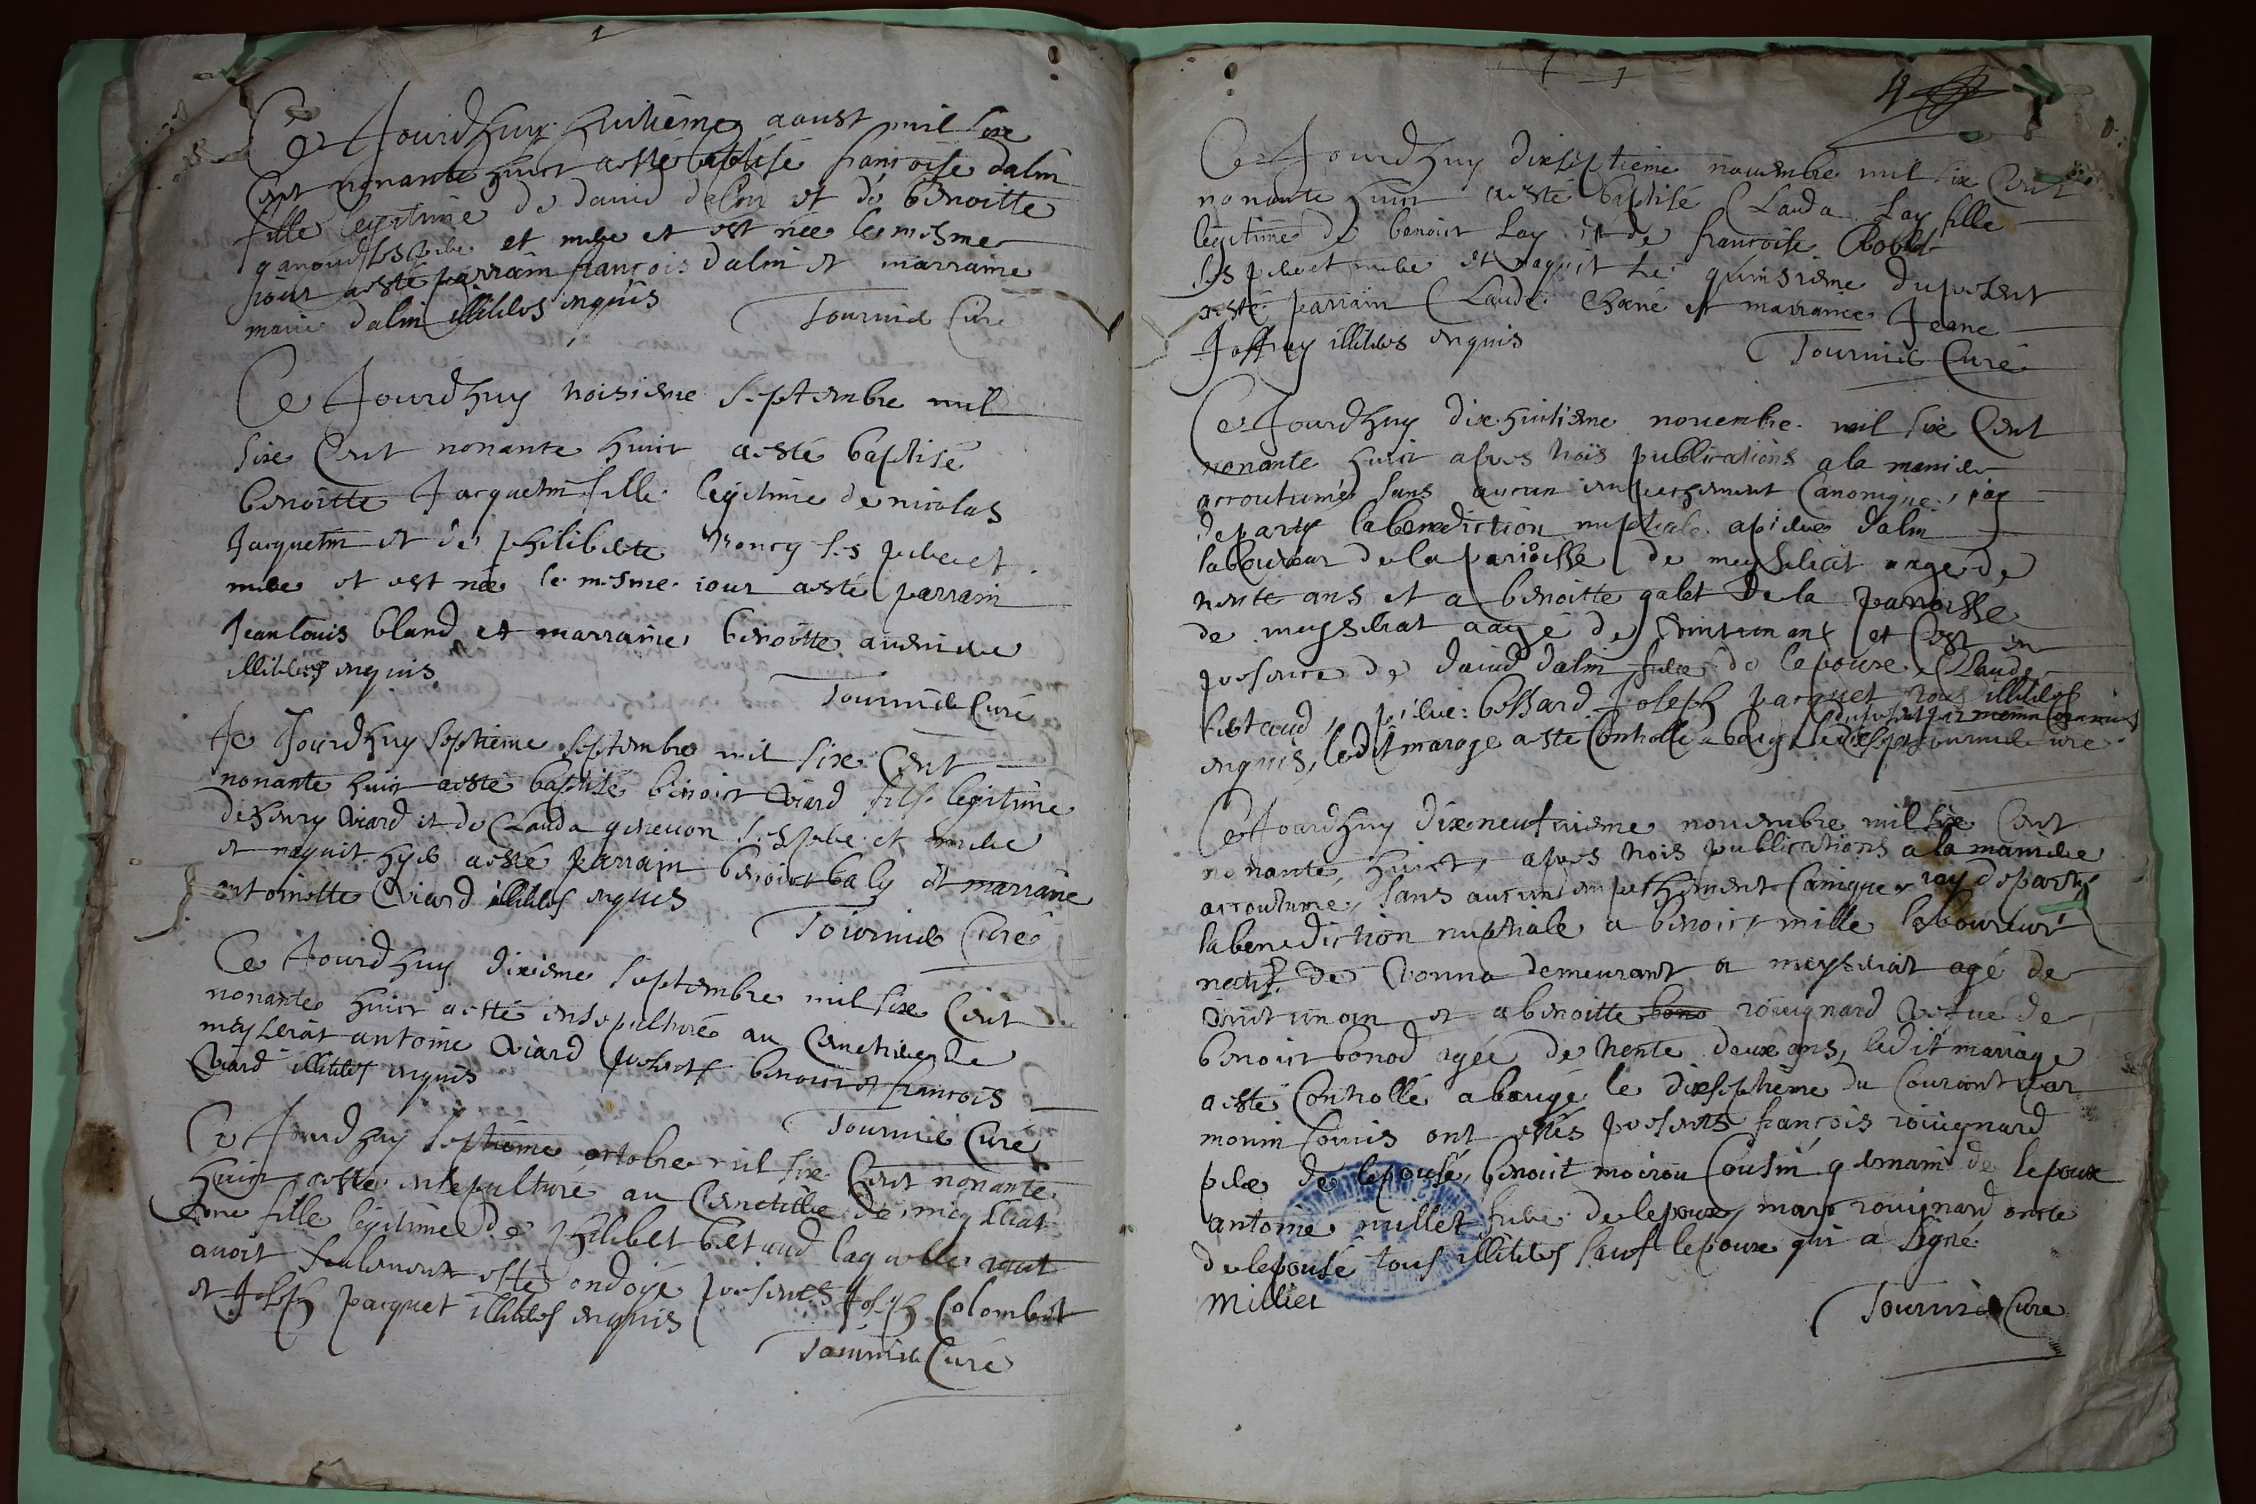 Ce Jourdhuy huitieme aoust mil six
Cent nonante huict a esté baptisé françoise dalin
fille legitime de david dalin et de benoitte
ses pere et mere et est née le mesme
jour a esté parrain françois dalin et marraine
marie dalin illiteres enquis
Tournier Curé
Ce Jourdhuy troisieme septembre mil
six Cent nonante huict a esté baptisé
benoitte Jacquetin fille legitime de nicolas
Jacquetin et de philiberte ses pere et
mere et est née le mesme iour a esté parrain
Jean louis bland et marraine benoitte
illiteres enquis
Tournier Curé
Ce Jourdhuy septieme septembre mil six Cent
nonante huict a esté baptisé benoict Viard fils legitime
de henry Viard et de Clauda ses pere et mere
et naquit hyer a esté parrain benoict baly et marraine
antoinette Viard illiteres enquis
Tournier Curé
Ce Jourdhuy dixieme septembre mil six Cent
nonante huict a esté ensepulturé au Cimetiere de
meyseriat antoine Viard presents benoict et françois
Viard illiteres enquis
Tournier Curé
Ce Jourdhuy septieme octobre mil six Cent nonante
huict a esté ensepulturé au Cimetiere de meyseriat
une fille legitime de philibert betaud laquelle
avoit seulement esté ondoyé presents Joseph Colombet
et Joseph pacquet illiteres enquis
Tournier Curé
4
Ce Jourdhuy dixseptieme novembre mil six Cent
nonante huict a esté baptisé Clauda Lay fille
legitime de benoict Lay et de françoise
ses pere et mere et naquit le quinsieme du present
a esté parrain Claude Chané et marraine Jeane
Joffray illiteres enquis
Tournier Curé
Ce Jourdhuy dixhuitieme novembre mil six Cent
nonante huict apres trois publications a la maniere
accoutumé sans aucun empechement Canonique, iay
departy la benediction nuptiale a pierre dalin
laboureur de la parroisse de meyseriat aagé de
trente ans et a benoitte galet de la paroisse
de meyseriat aagé de vint un ans et Cest en
presence de david dalin frere de lepoux, Claude
betaud, pierre bossard Joseph pacquet tous illiteres
enquis, ledit marage a esté Controllé a baugé le dixsept
du present par monin Commis
Tournier Curé
Ce Jourdhuy dixneufvieme novembre mil six Cent
nonante huict, apres trois publications a la maniere
accoutumé, sans aucun empechement Canique, iay departy
la benediction nuptiale a benoict mille laboureur
natif de Vonna demeurant a meyseriat agé de
vint un an et a benoitte bono rouignard vefue de
benoict bonod agée de trente deux ans, ledit mariage
a esté Controllé a baugé le dixseptieme du Courant par
monin Comis ont estés presents françois rouignard
pere de lepouse, benoit moirou Cousin germain de lepoux
antoine millet frere de lepoux, marc rouignard oncle
de lepouse tous illiteres sauf lepoux qui a signé
Milliet
Tournier Curé